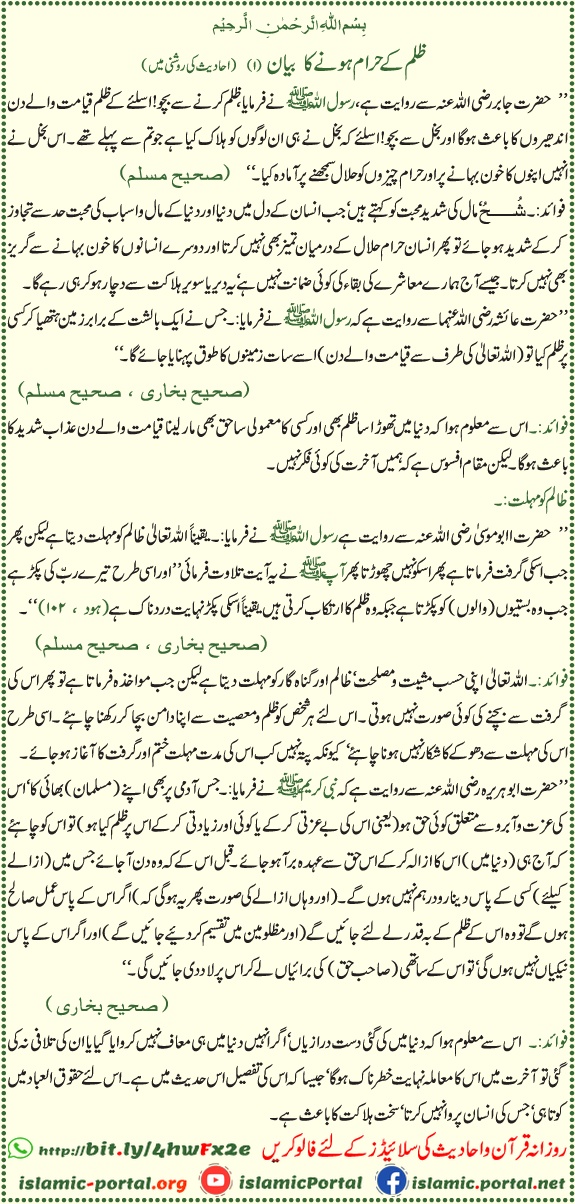 بِسْمِ اللهِ الرَّحْمٰنِ الرَّحِيْمِ
ظلم کے حرام ہونے کا بیان (۱) (احادیث کی روشنی میں)
’’ حضرت جابر رضی اللہ عنہ سے روایت ہے، رسول اللہ ﷺ نے فرمایا، ظلم کرنے سے بچو! اسلئے کے ظلم قیامت والے دن
اندھیروں کا باعث ہوگا اور بخل سے بچو! اسلئے کہ بخل نے ہی ان لوگوں کو ہلاک کیا ہے جو تم سے پہلے تھے۔ اس بخل نے
انہیں اپنوں کا خون بہانے پر اور حرام چیزوں کو حلال سمجھنے پر آمادہ کیا۔‘‘ (صحیح مسلم)
فوائد:۔ شُحّ’ مال کی شدید محبت کو کہتے ہیں’ جب انسان کے دل میں دنیا اور دنیا کے مال و اسباب کی محبت حد سے تجاوز
کر کے شدید ہو جائے تو پھر انسان حرام حلال کے درمیان تمیز بھی نہیں کرتا اور دوسرے انسانوں کا خون بہانے سے گریز
بھی نہیں کرتا۔ جیسے آج ہمارے معاشرے کی بقاء کی کوئی ضمانت نہیں ہے’ یہ دیر یا سویر ہلاکت سے دچار ہو کر ہی رہے گا۔
’’حضرت عائشہ رضی اللہ عنہا سے روایت ہے کہ رسول اللہ ﷺ نے فرمایا:۔ جس نے ایک بالشت کے برابر زمین ہتھیا کر کسی
پر ظلم کیا تو (اللہ تعالیٰ کی طرف سے قیامت والے دن) اسے سات زمینوں کا طوق پہنایا جائے گا۔‘‘
(صحیح بخاری ، صحیح مسلم)
فوائد:۔ اس سے معلوم ہوا کہ دنیا میں تھوڑا سا ظلم بھی اور کسی کا معمولی سا حق بھی مار لینا قیامت والے دن عذاب شدید کا
باعث ہوگا۔ لیکن مقام افسوس ہے کہ ہمیں آخرت کی کوئی فکر نہیں۔
ظالم کو مہلت:۔
’’ حضرت ابوموسیٰ رضی اللہ عنہ سے روایت ہے رسول اللہ ﷺ نے فرمایا:۔ یقیناً اللہ تعالیٰ ظالم کو مہلت دیتا ہے لیکن پھر
جب اسکی گرفت فرماتا ہے پھر اسکو نہیں چھوڑتا پھر آپ ﷺ نے یہ آیت تلاوت فرمائی’’ اور اسی طرح تیرے ربّ کی پکڑ ہے
جب وہ بستیوں (والوں) کو پکڑتا ہے جبکہ وہ ظلم کا ارتکاب کرتی ہیں یقیناً اسکی پکڑ نہایت دردناک ہے (ھود ، ۱۰۲)‘‘۔
(صحیح بخاری ، صحیح مسلم)
فوائد:۔ اللہ تعالیٰ اپنی حسب مشیت و مصلحت’ ظالم اور گناہ گار کو مہلت دیتا ہے لیکن جب مواخذہ فرماتا ہے تو پھر اس کی
گرفت سے بچنے کی کوئی صورت نہیں ہوتی ۔ اس لئے ہر شخص کو ظلم و معصیت سے اپنا دامن بچا کر رکھنا چاہئے ۔ اسی طرح
اس کی مہلت سے دھوکے کا شکار نہیں ہونا چاہئے’ کیونکہ پتہ نہیں کب اس کی مدت مہلت ختم اور گرفت کا آغاز ہو جائے۔
’’حضرت ابوہریرہ رضی اللہ عنہ سے روایت ہے کہ نبی کریم ﷺ نے فرمایا:۔ جس آدمی پر بھی اپنے (مسلمان) بھائی کا’ اس
کی عزت و آبرو سے متعلق کوئی حق ہو (یعنی اس کی بے عزتی کر کے یا کوئی اور زیادتی کر کے اس پر ظلم کیا ہو) تو اس کو چاہئے
کہ آج ہی (دنیا میں) اس کا ازالہ کر کے اس حق سے عہدہ برآ ہو جائے۔ قبل اس کے کہ وہ دن آجائے جس میں (ازالے
کیلئے) کسی کے پاس دینار و درہم نہیں ہوں گے۔ (اور وہاں ازالے کی صورت پھر یہ ہوگی کہ) اگر اس کے پاس عمل صالح
ہوں گے تو وہ اس کے ظلم کے بہ قدر لے لئے جائیں گے (اور مظلومین میں تقسیم کر دیئے جائیں گے) اور اگر اس کے پاس
نیکیاں نہیں ہوں گی’ تو اس کے ساتھی (صاحب حق) کی برائیاں لے کر اس پر لاد دی جائیں گی۔‘‘
(صحیح بخاری)
فوائد:۔ اس سے معلوم ہوا کہ دنیا میں کی گئی دست درازیاں’ اگر انہیں دنیا میں ہی معاف نہیں کروایا گیا یا ان کی تلافی نہ کی
گئی تو آخرت میں اس کا معاملہ نہایت خطرناک ہوگا’ جیسا کہ اس کی تفصیل اس حدیث میں ہے۔ اس لئے حقوق العباد میں
کوتاہی’ جس کی انسان پروا نہیں کرتا’ سخت ہلاکت کا باعث ہے۔
روزانہ قرآن و احادیث کی سلائیڈز کے لئے فالو کریں http://bit.ly/4hwFx2e
islamic-portal.org islamic.portal.net